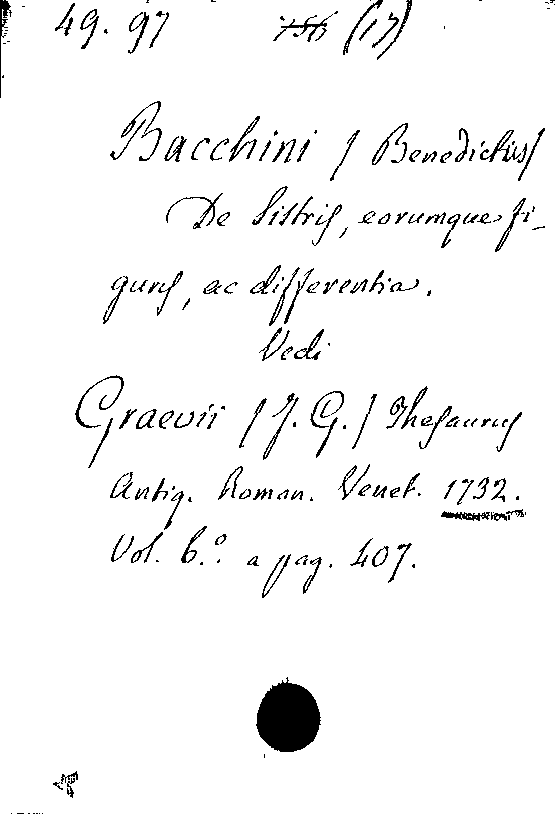 49. 97 756 (17)
Bacchini / Benedictus/
De Sistris, eorumque fi-
guris, ac differentia.
Vedi
Graevii / J. G. / Thesaurus
Antiq. Roman. Venet. 1732.
Vol. 6.º a pag. 407.